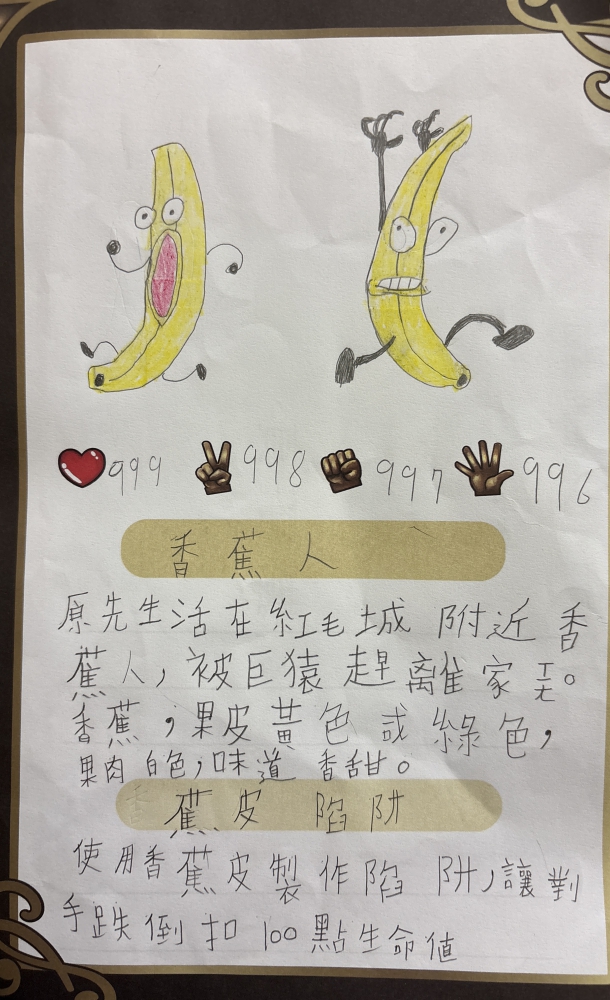 999 998 997 996
香蕉人
原先生活在紅毛城附近香
蕉人,被巨猿趕離家
。
香蕉,果皮黃色或綠色,
果肉白色,味道香甜。
蕉皮陷阱
使用香蕉皮製作陷阱,讓對
手跌倒扣100點生命值